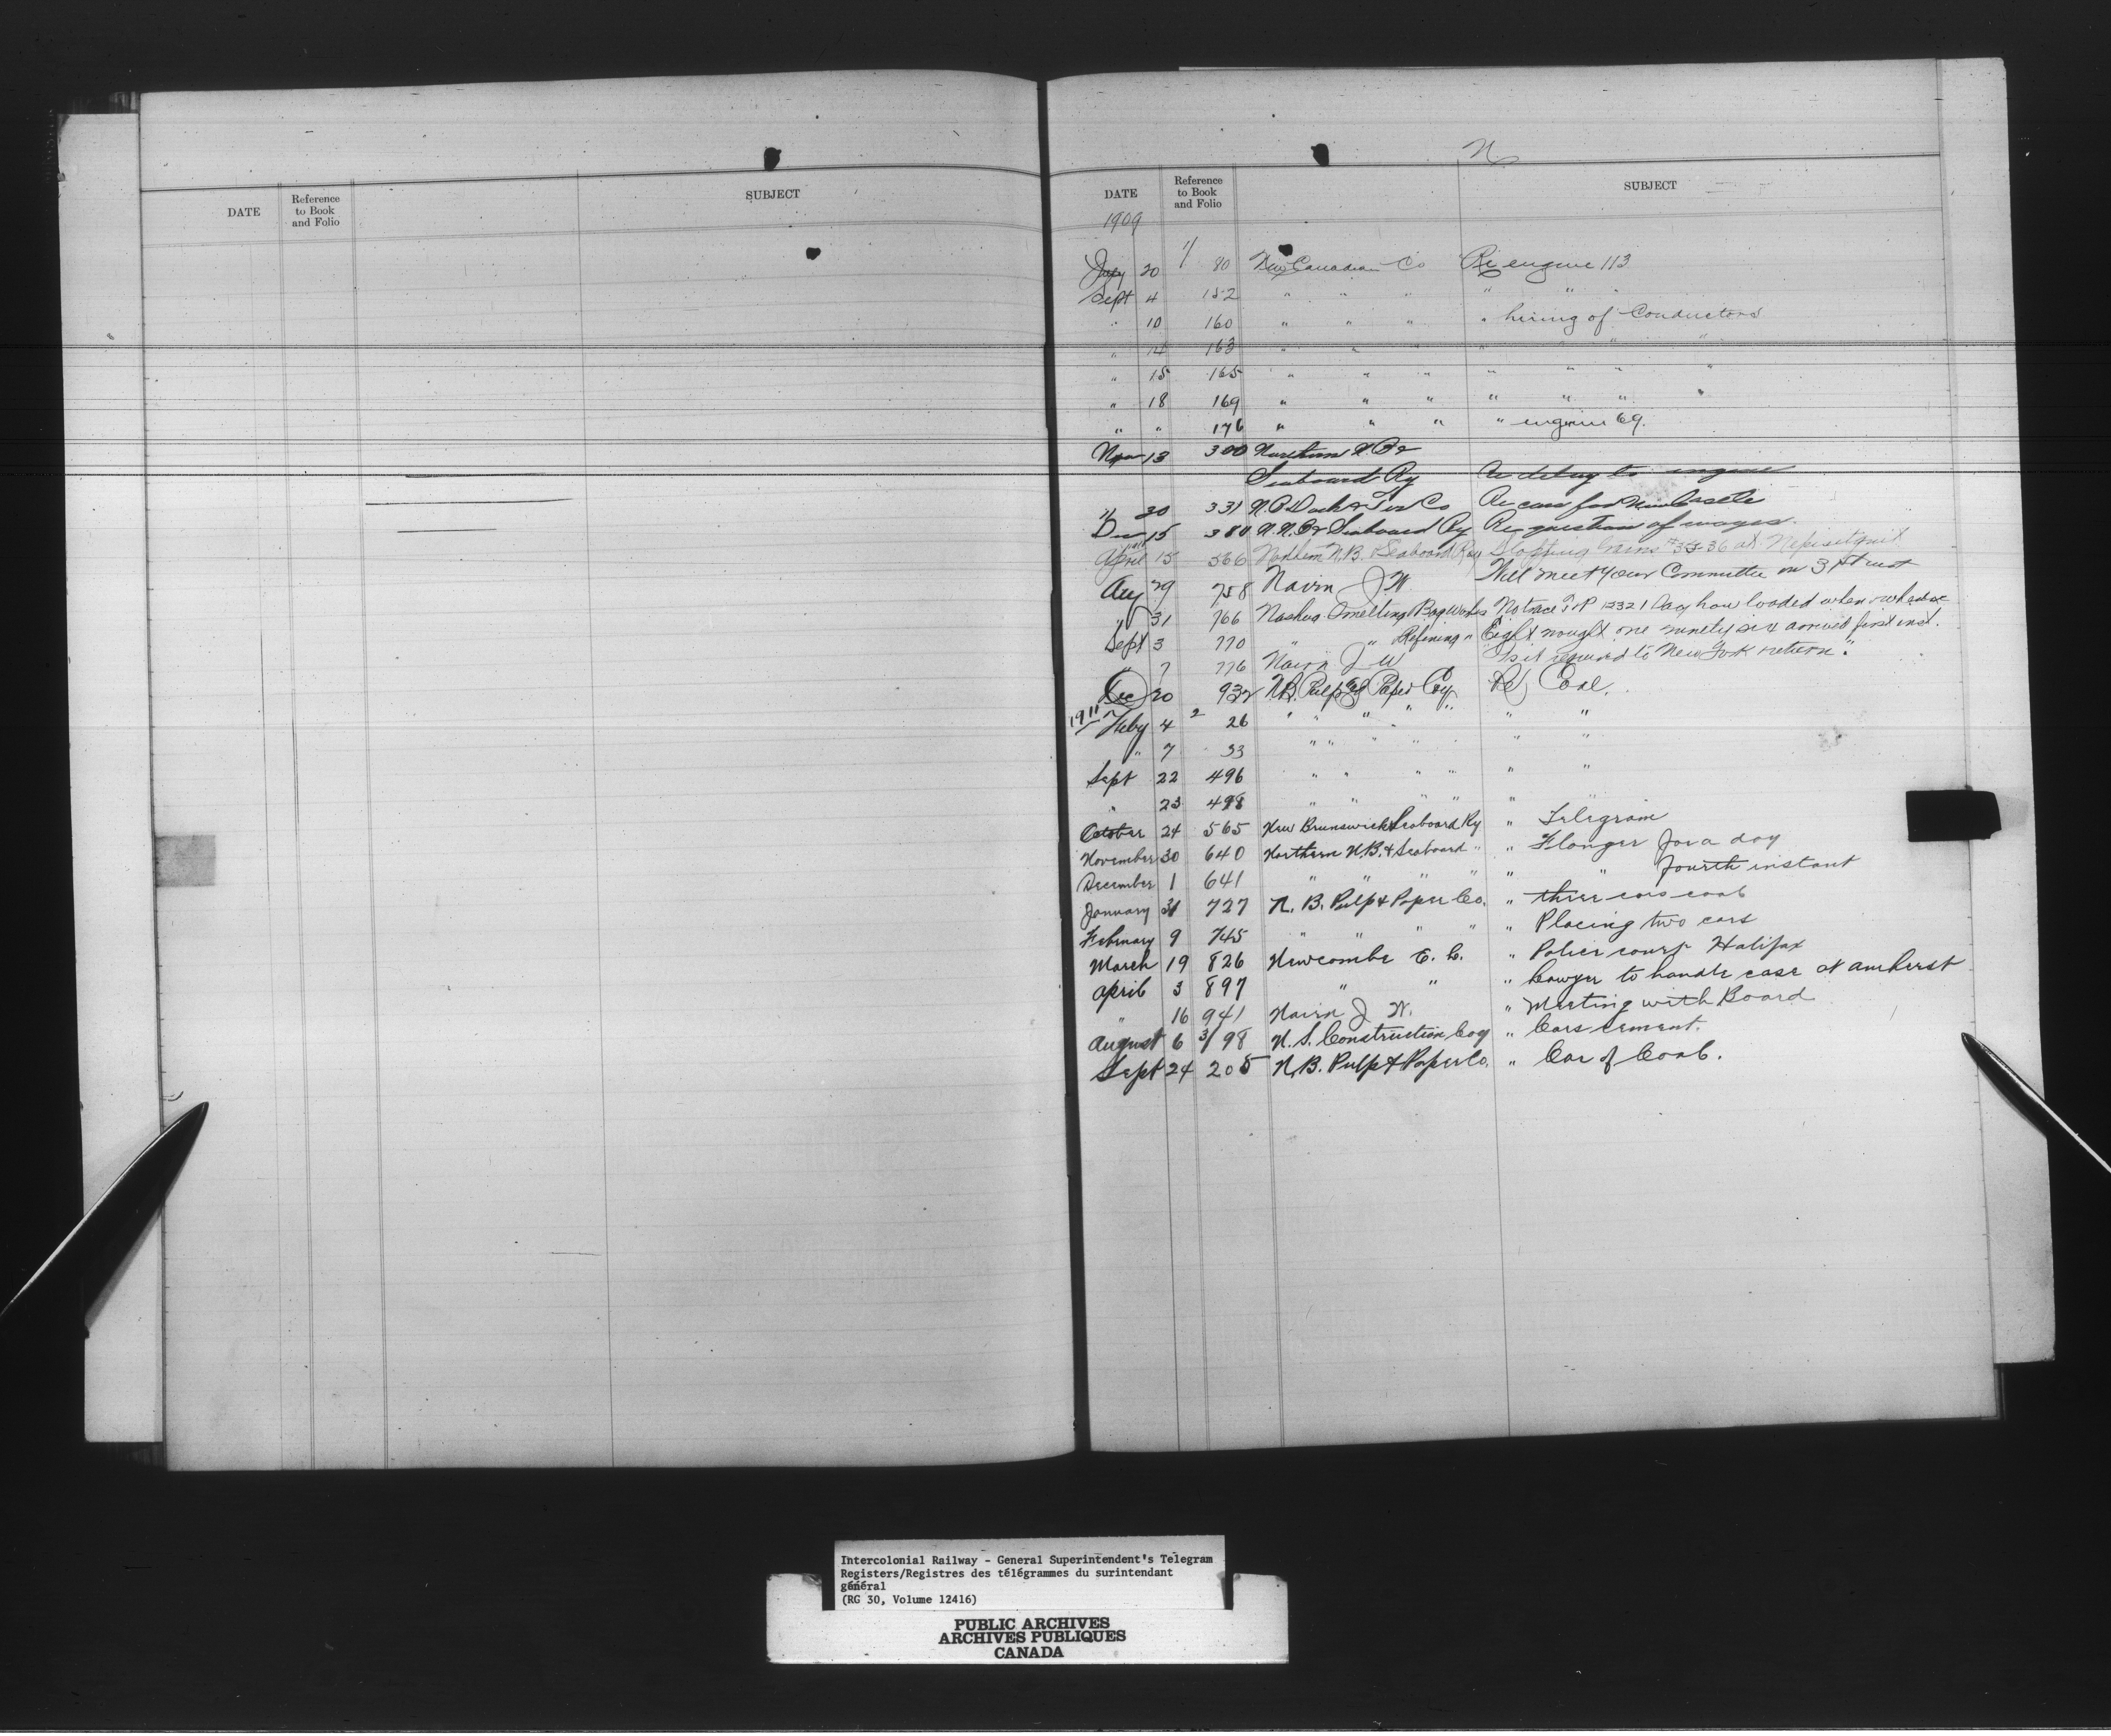 DATE Reference to Book and Folio SUBJECT
N
DATE Reference to Book and Folio SUBJECT
1909
July 20 1/ 80 New Canadian Co Re engine 113
Sept 4 152 " " " " " "
" 10 160 " " " " hiring of Conductors
" 14 163 " " " " " "
" 15 165 " " " " " " "
" 18 169 " " " " " " "
" " 176 " " " " engine 69.
Nov 13 300 Northern N B &
Seaboard Ry Re delay to engine
" 30 331 N.B. & Co Re cars for Newcastle
Dec 15 380 N.N.B & Seaboard Ry Re question of wages.
April 15 566 Northern N.B. Seaboard Ry Stopping trains #35-36 at Nepisiguit
Aug 29 758 Nairn J W Will meet your Committee on 31st inst
" 31 766 Nashua Smelting Works No trace 12321 Say how loaded when
Sept 3 770 " " Refining " Eight nought one ninety six arrived first inst.
" 7 776 Nairn J W Is it required to New York return.
Dec 20 932 N.B. Pulp & Paper Coy Re Coal.
1911 Feby 4 2 26 " " " " " " "
" 7 33 " " " " " "
Sept 22 496 " " " " " "
" 23 498 " " " " "
October 24 565 New Brunswick & Seaboard Ry " Telegram
November 30 640 Northern N.B. & Seaboard " " Flanger for a day
December 1 641 " " " " " " fourth instant
January 31 727 N. B. Pulp & Paper Co. " three cars coal
February 9 745 " " " " " Placing two cars
March 19 826 Newcombe E. L. " Police court Halifax
April 3 897 " " " Lawyer to handle case at Amherst
" 16 941 Nairn J W. " Meeting with Board
August 6 3/98 N. S. Construction Coy " Cars cement.
Sept 24 205 N.B. Pulp & Paper Co. " Car of Coal.
Intercolonial Railway - General Superintendent's Telegram
Registers/Registres des télégrammes du surintendant
général
(RG 30, Volume 12416)
PUBLIC ARCHIVES
ARCHIVES PUBLIQUES
CANADA